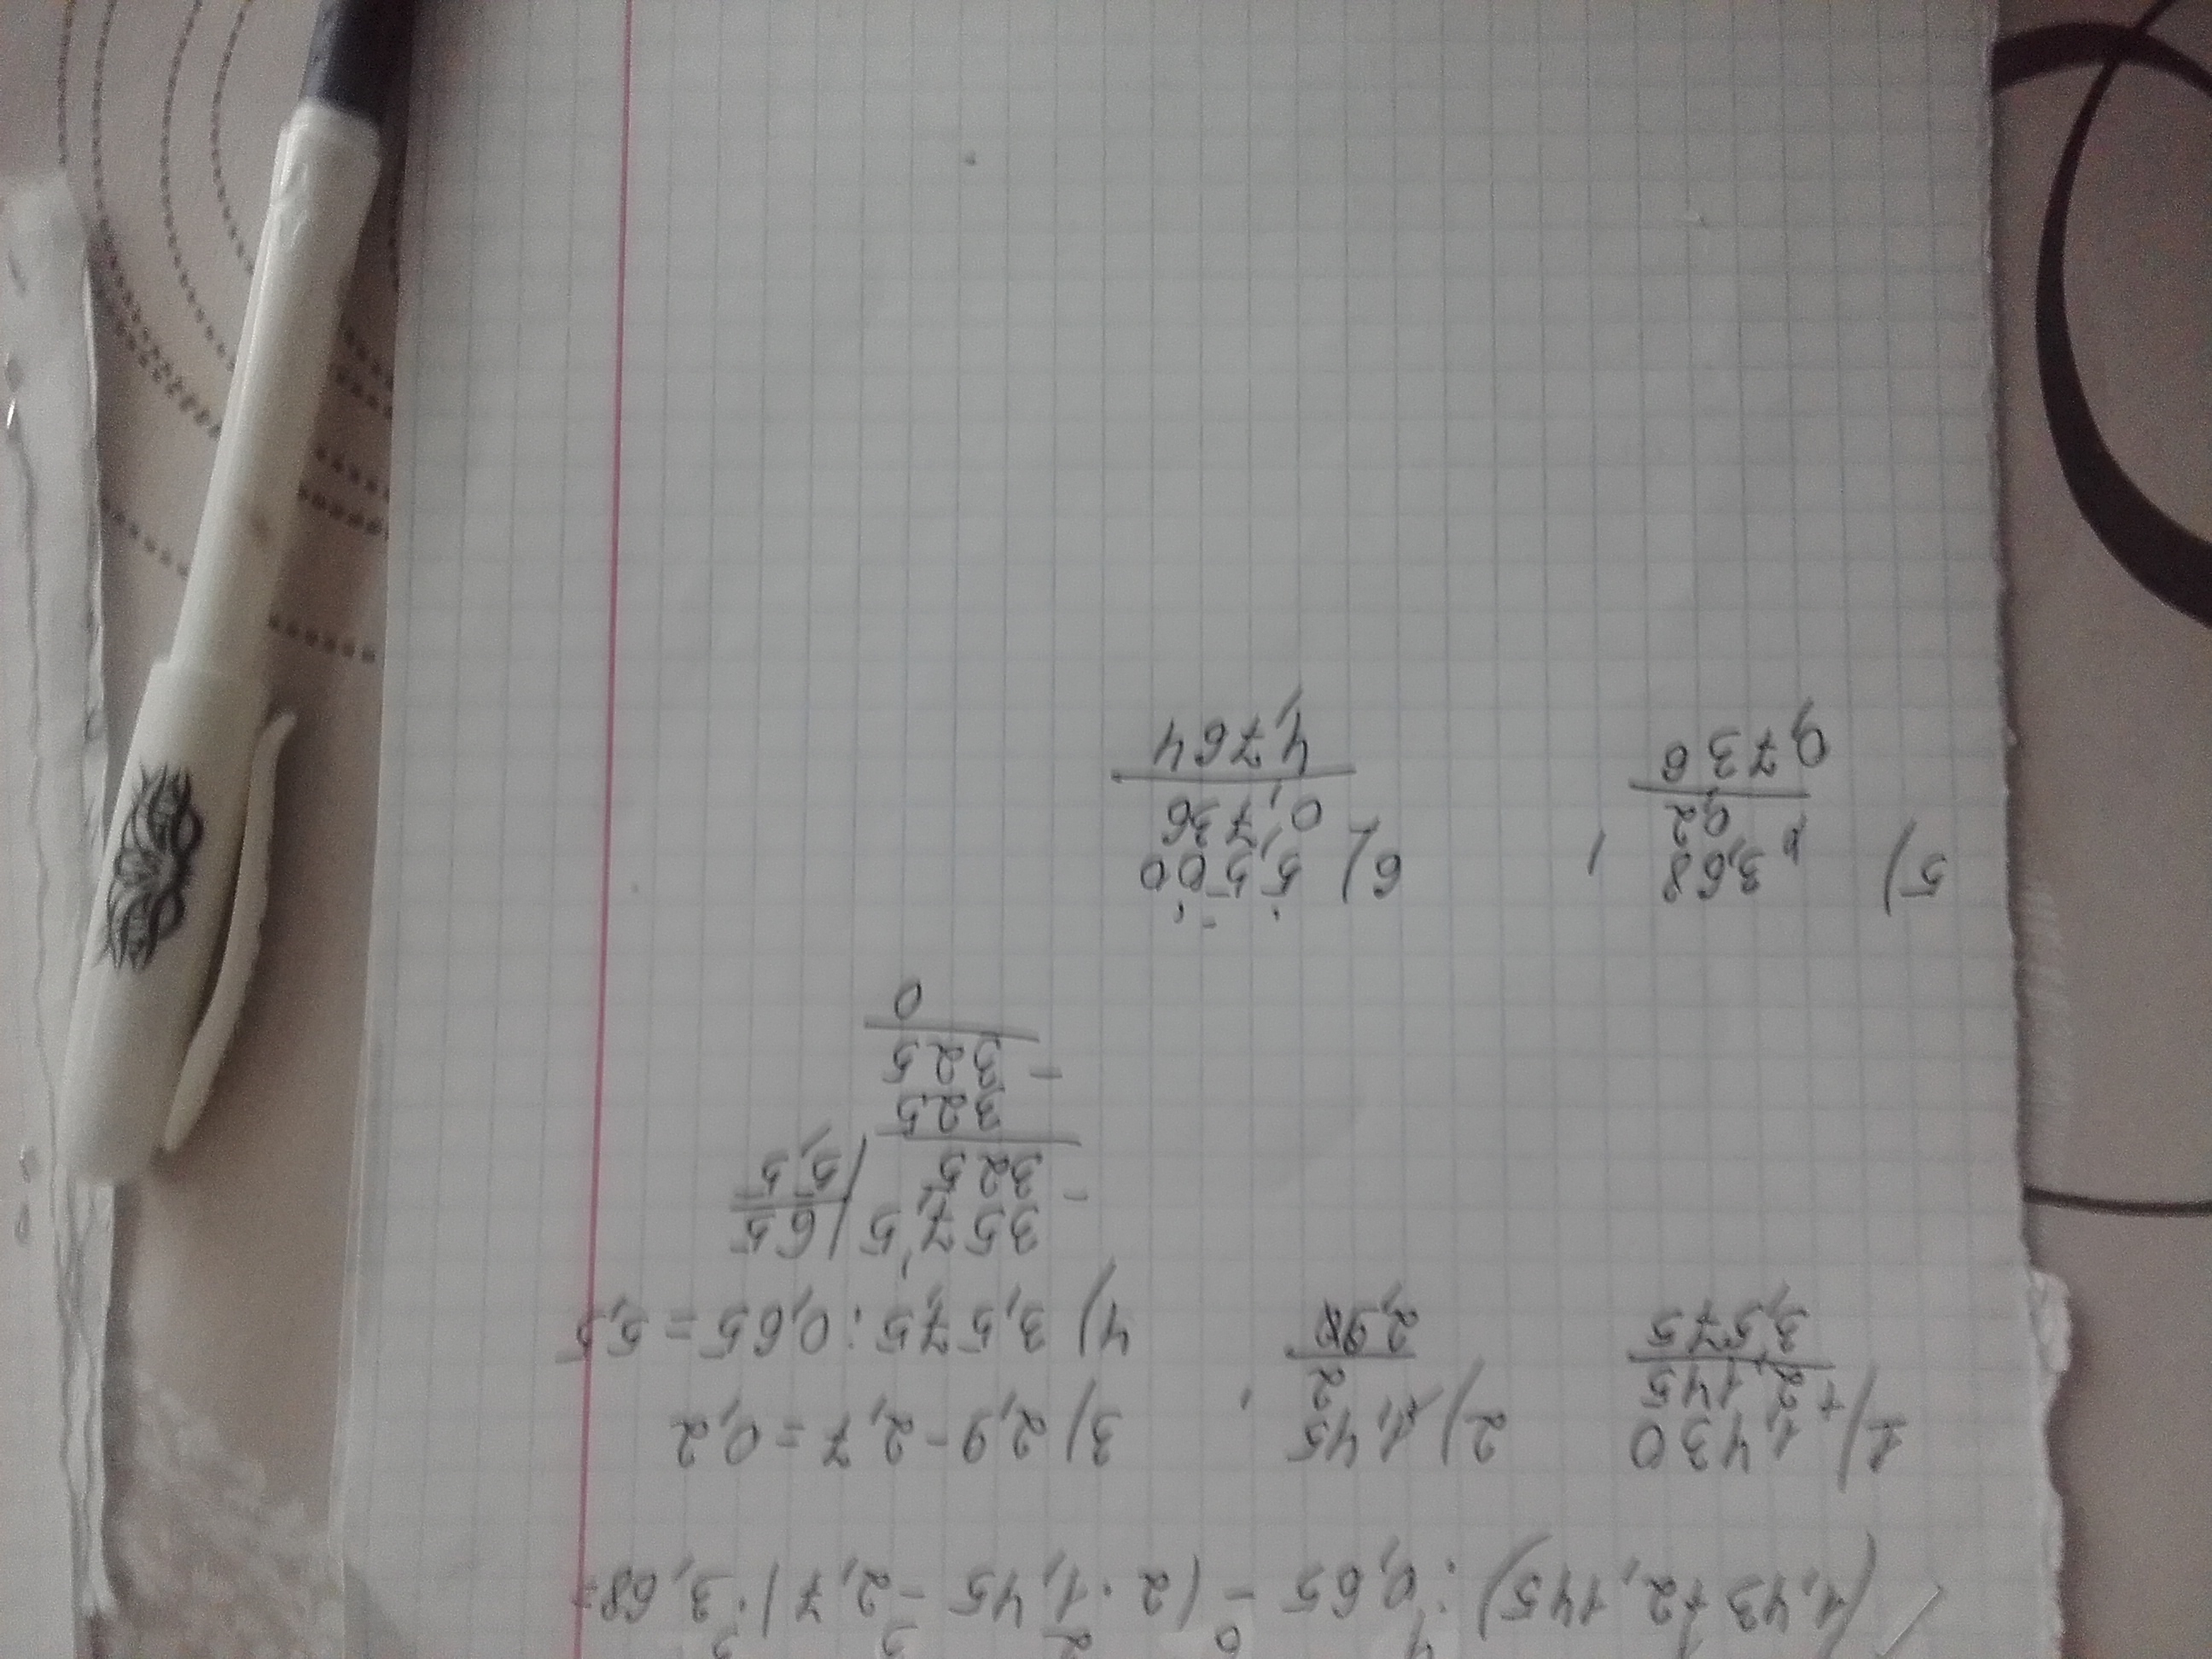 1 4 6 2 3 5
(1,43+2,145):0,65-(2·1,45-2,7)·3,68=
1) 1,430
+ 2,145
3,575
2) 1,45
× 2
2,90
3) 2,9-2,7=0,2
4) 3,575:0,65=5,5
357,5 65
- 325 5,5
325
- 325
0
5) 3,68
× 0,2
0,736
6) 5,500
0,736
4,764